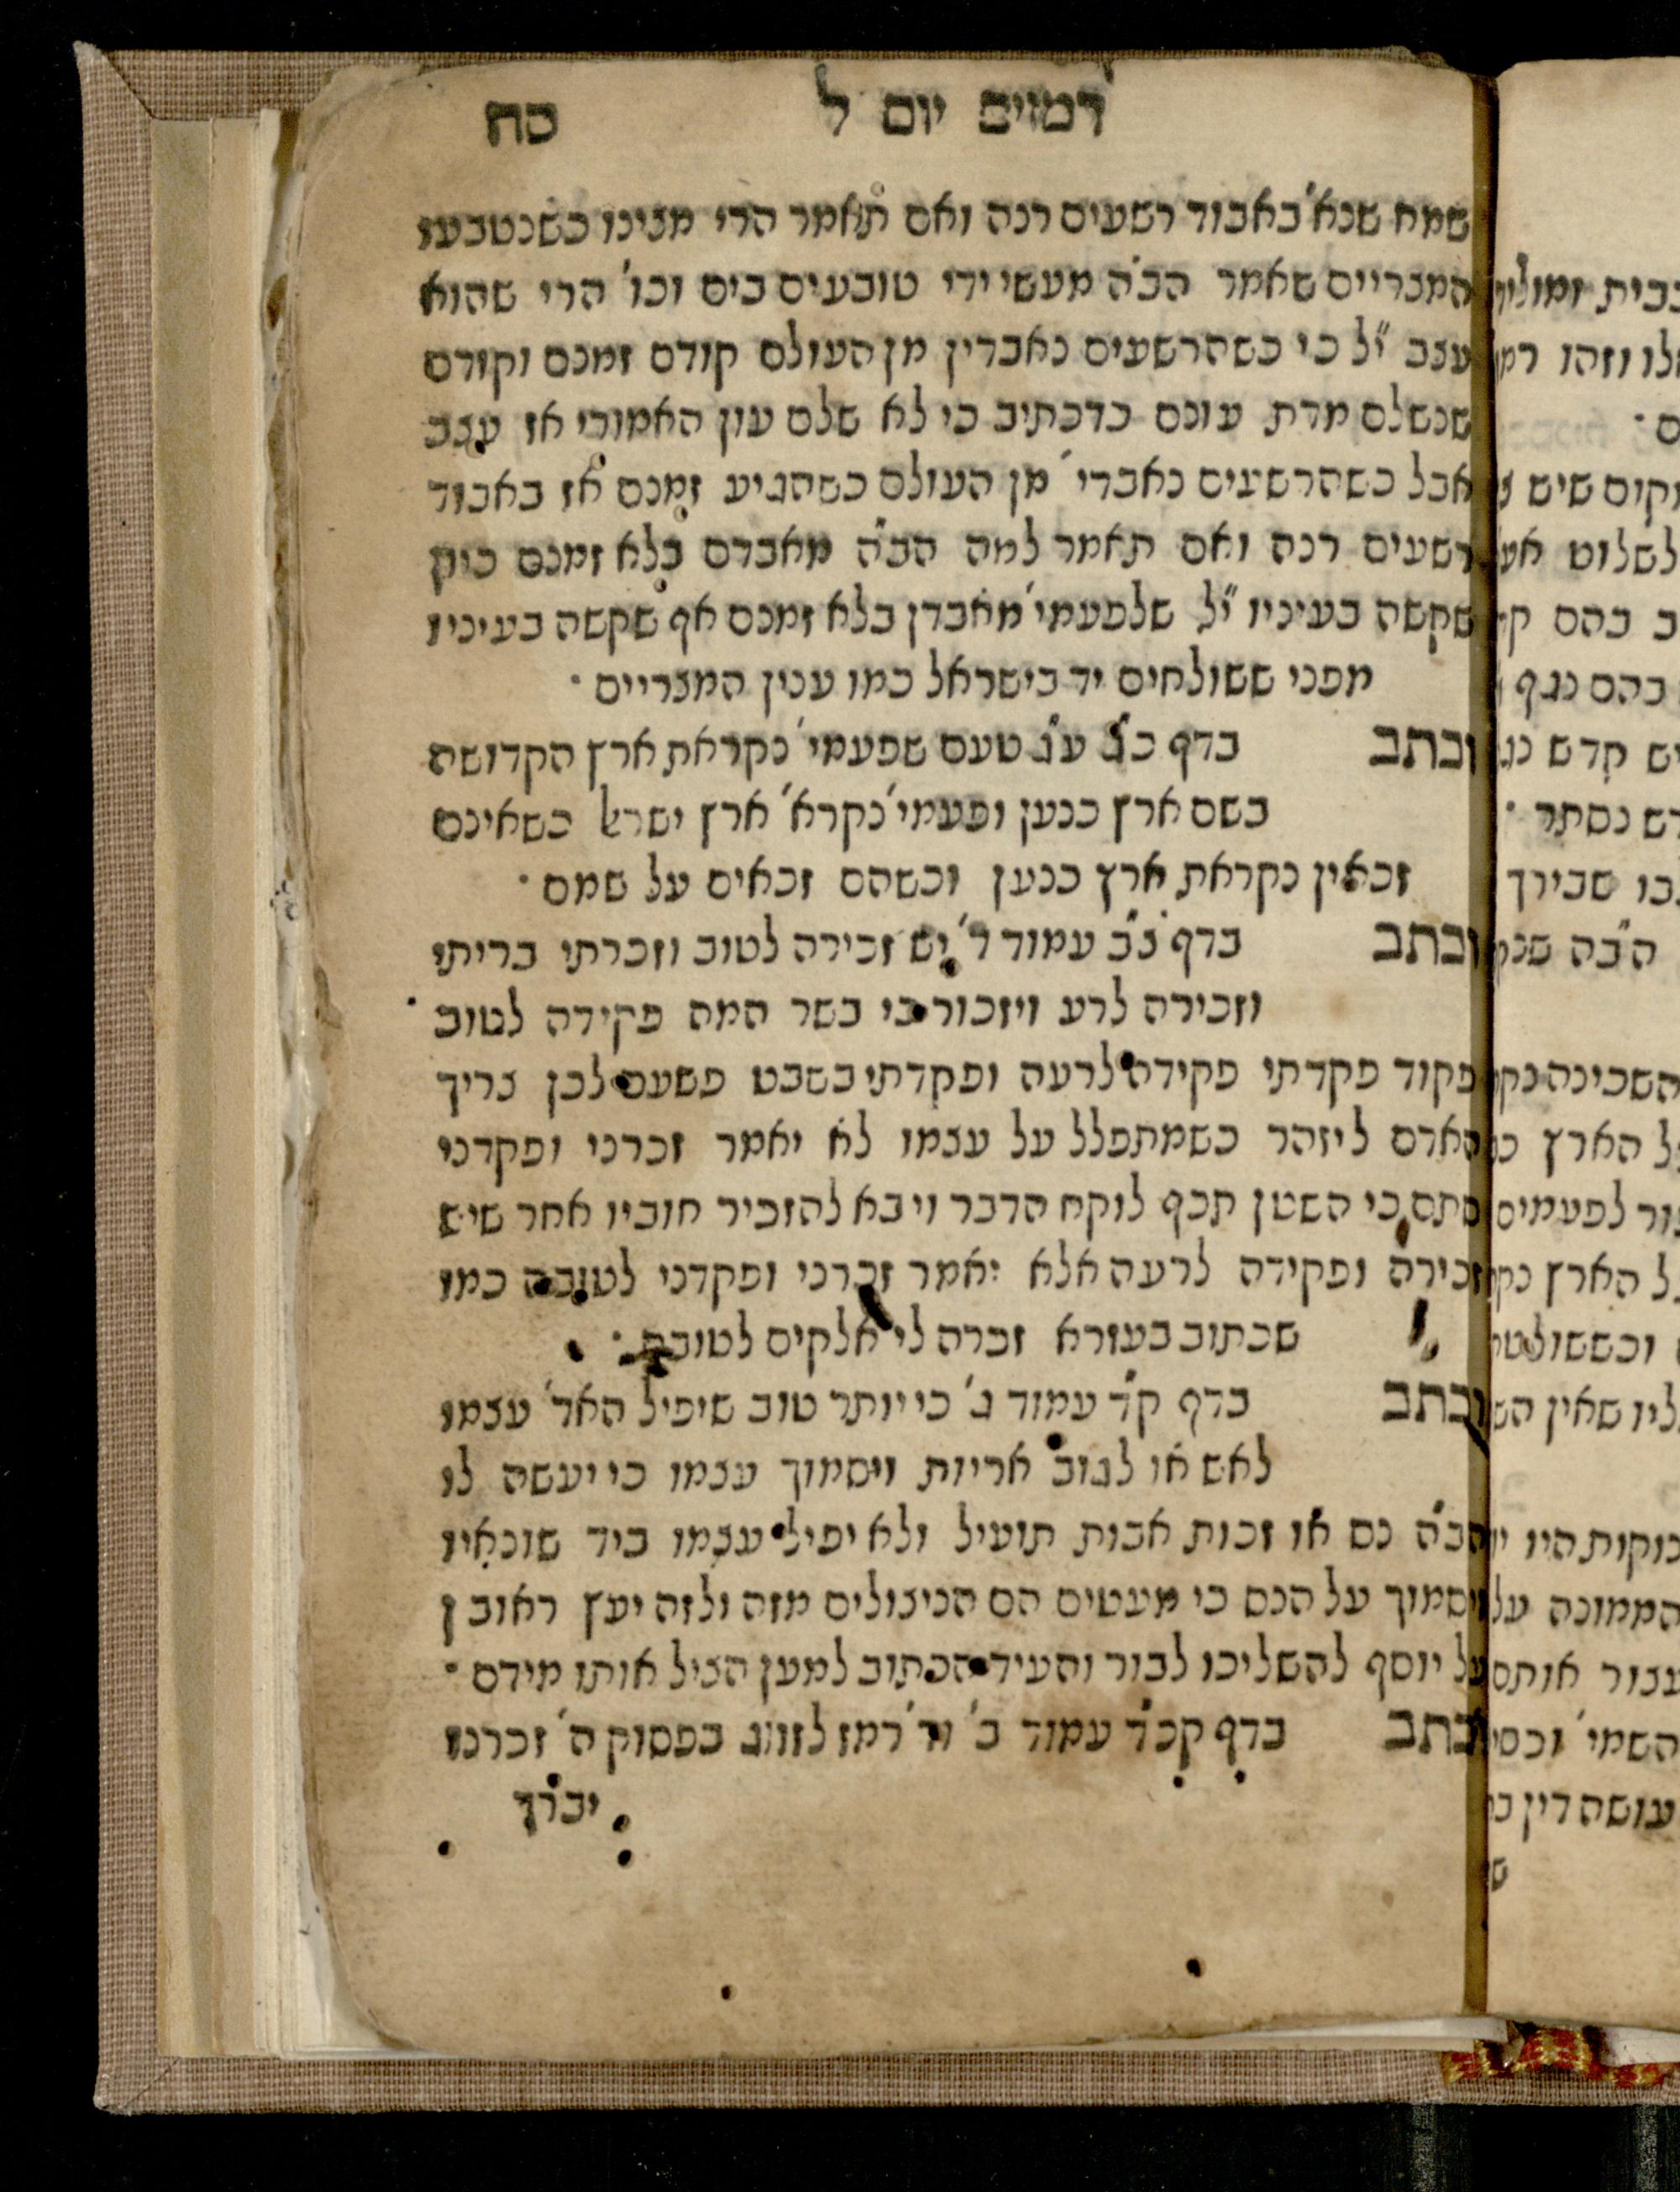 רמזים יום ל כח
שמח שנא' באבוד רשעים רנה ואם תאמר הרי מצינו כשנטבעו
המצריים שאמר הב"ה מעשי ידי טובעים בים וכו' הרי שהוא
עצב י"ל כי כשהרשעים נאבדין מן העולם קודם זמנם וקודם
שנשלם מדת עונם כדכתיב כי לא שלם עון האמורי אז עצב
אבל כשהרשעים נאבדי' מן העולם כשהגיע זמנם אז באבוד
רשעים רנה ואם תאמר למה הב"ה מאבדם בלא זמנם כיון
שקשה בעיניו י"ל שלפעמי' מאבדן בלא זמנם אף שקשה בעיניו
מפני ששולחים יד בישראל כמו ענין המצריים ·
וכתב בדף כ"ג ע"ג טעם שפעמי' נקראת ארץ הקדושה
בשם ארץ כנען ופעמי' נקרא' ארץ ישראל כשאינם
זכאין נקראת ארץ כנען וכשהם זכאים על שמם ·
וכתב בדף נ"ב עמוד ד' יש זכירה לטוב וזכרתי בריתי
וזכירה לרע ויזכור כי בשר המה פקידה לטוב
פקוד פקדתי פקידה לרעה ופקדתי בשבט פשעם לכן צריך
האדם ליזהר כשמתפלל על עצמו לא יאמר זכרני ופקדני
סתם כי השטן תכף לוקח הדבר ויבא להזכיר חוביו אחר שיש
זכירה ופקידה לרעה אלא יאמר זכרני ופקדני לטובה כמו
שכתוב בעזרא זכרה לי אלקים לטובה ·
וכתב בדף ק"ד עמוד ג' כי יותר טוב שיפיל האד' עצמו
לאש או לגוב אריות ויסמוך עצמו כי יעשה לו
הב"ה נם או זכות אבות תועיל ולא יפיל עצמו ביד שונאיו
ויסמוך על הנם כי מעטים הם הניצולים מזה ולזה יעץ ראובן
על יוסף להשליכו לבור והעיד הכתוב למען הציל אותו מידם ·
וכתב בדף קכ"ד עמוד ב' וד' רמז לזווג בפסוק ה' זכרנו
יברך